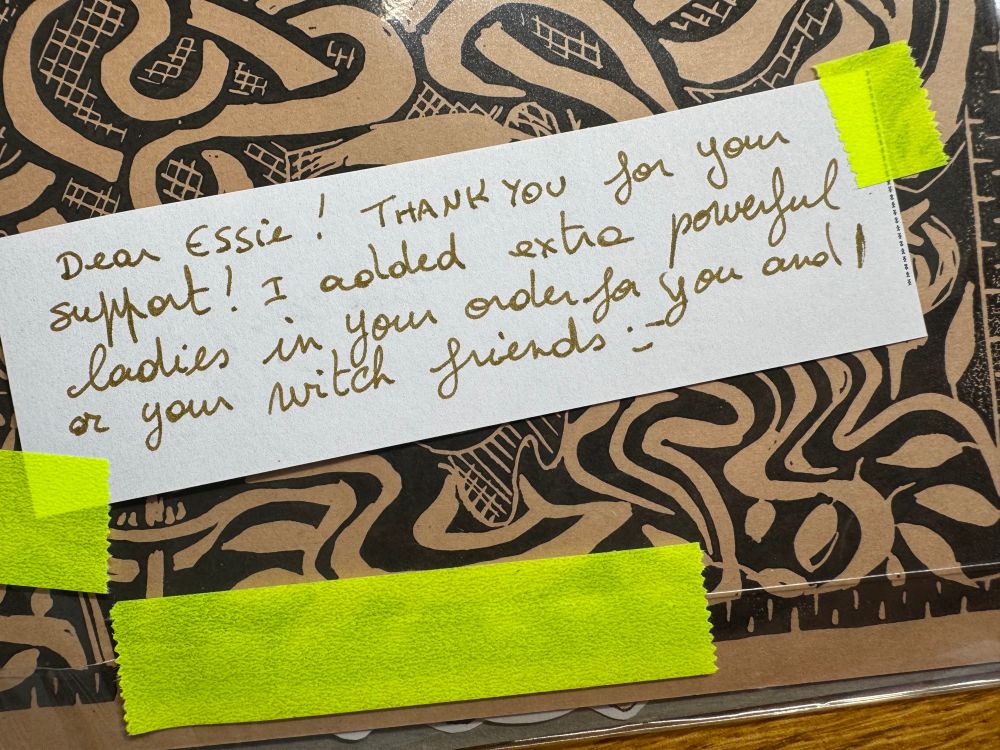 Dear Essie! THANK YOU for your
support! I added extra powerful
ladies in your order for you and/
or your witch friends :-)